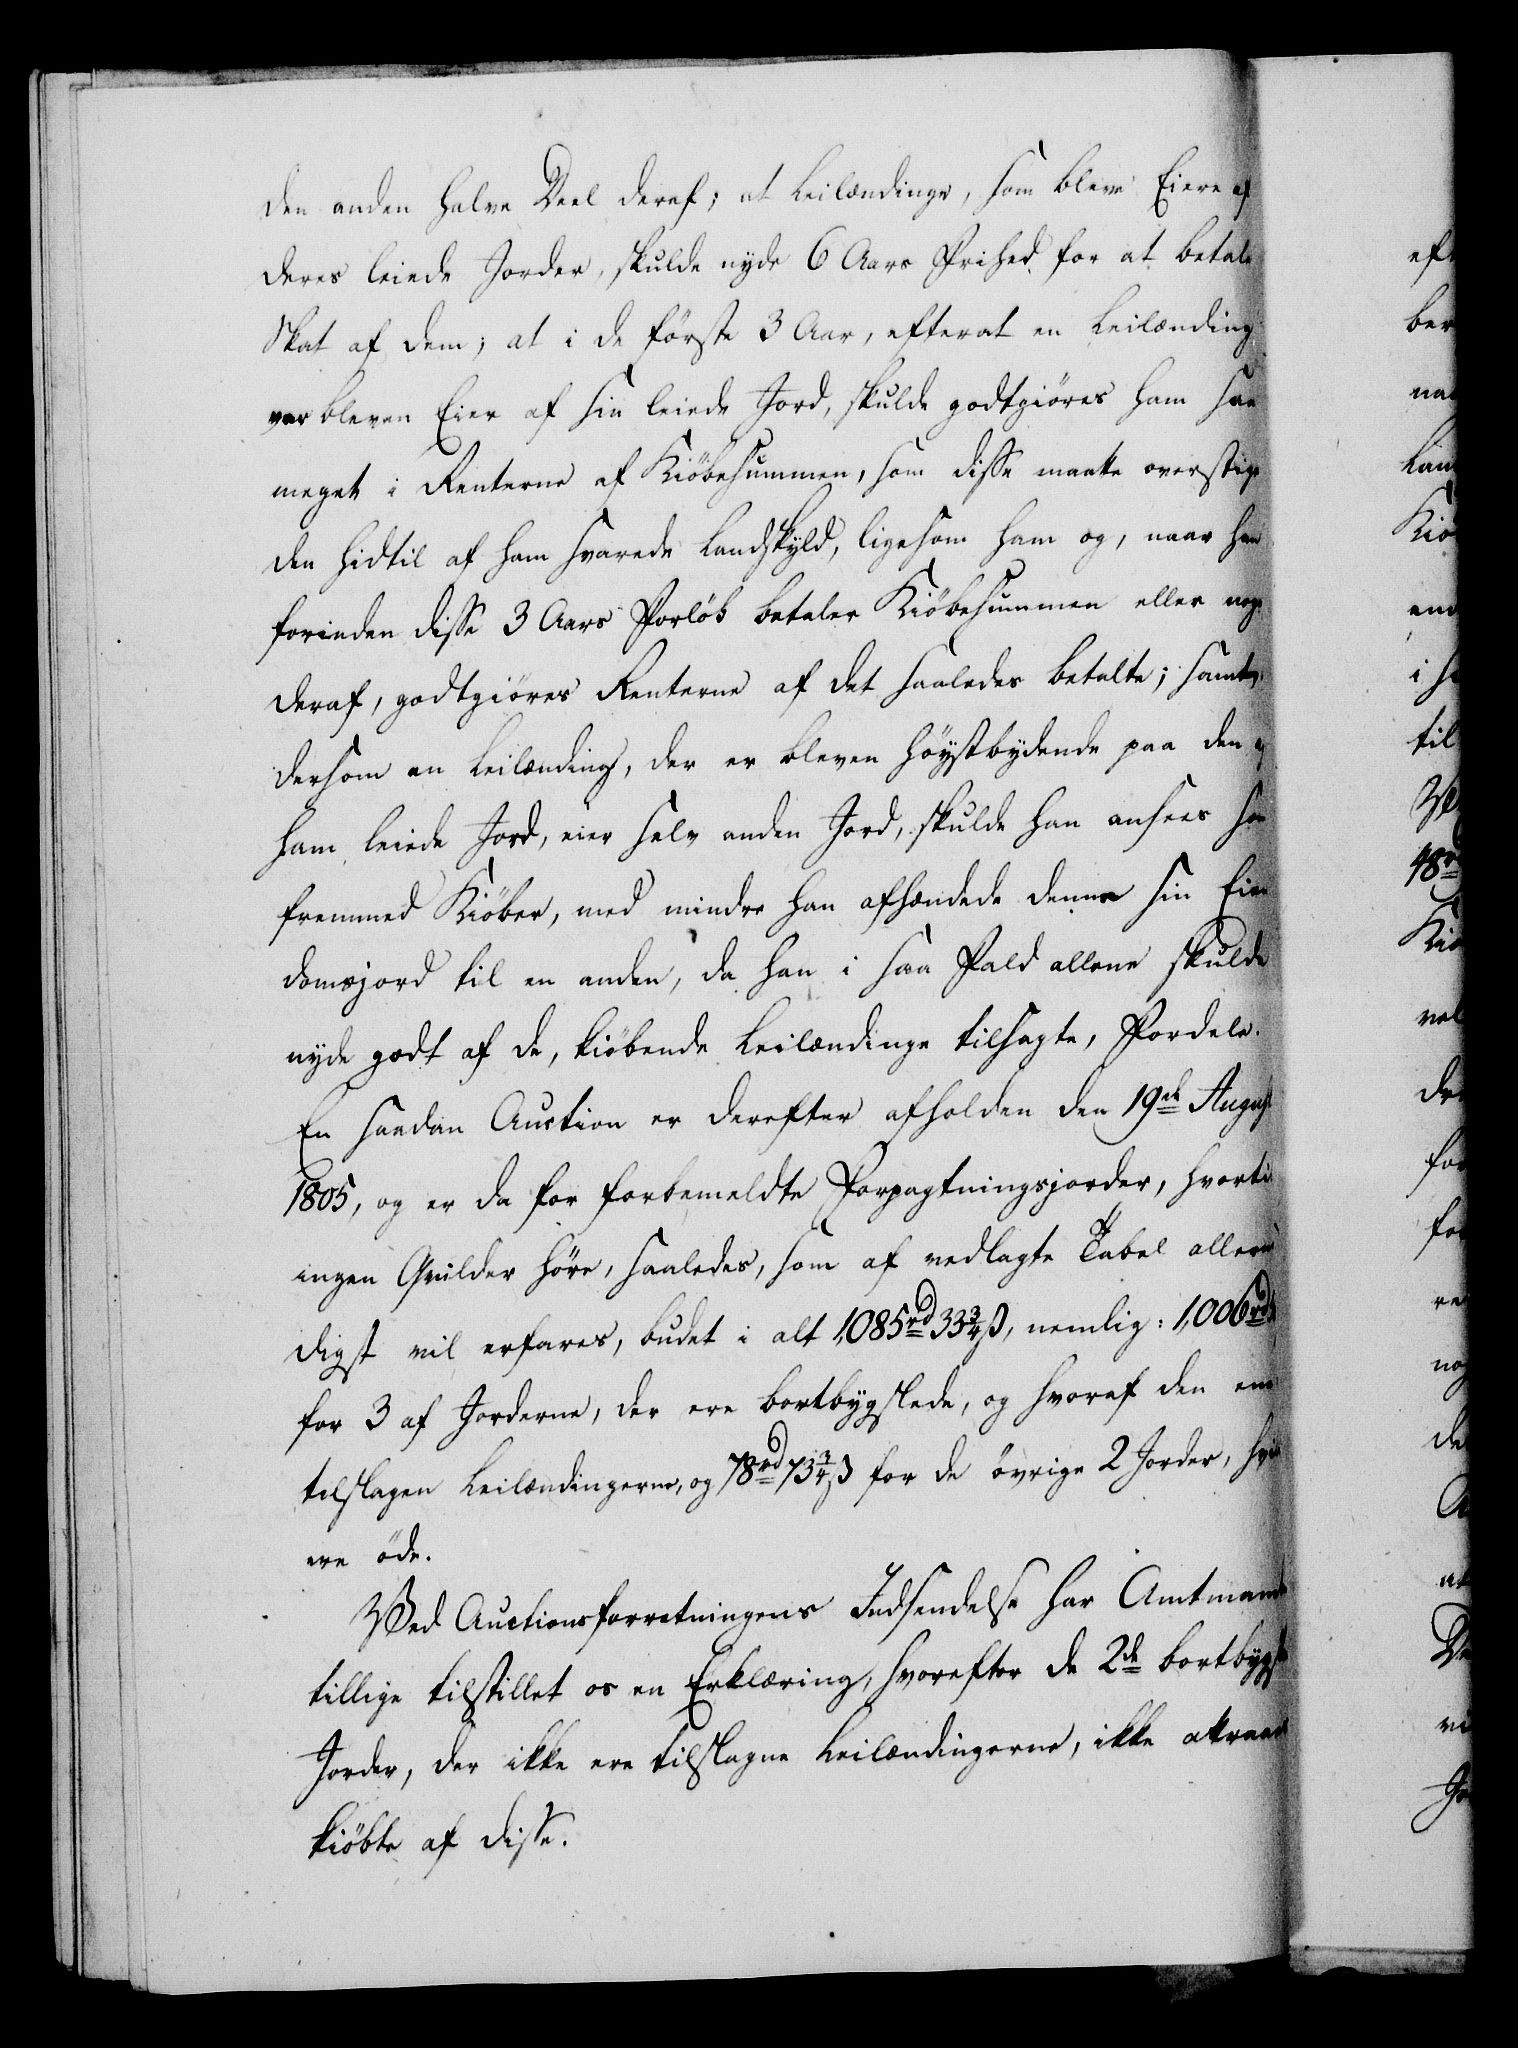 den anden halve Deel deraf; at Leilændinge, som bleve Eiere af
deres leiede Jorder, skulde nyde 6 Aars Frihed for at betale
Skat af dem; at i de förste 3 Aar, efterat en Leilænding
var bleven Eier af sin leiede Jord, skulde godtgiöres ham saa
meget i Renterne af Kiöbesummen, som disse maatte overstige
den hidtil af ham svarede Landskyld, ligesom ham og, naar han
forinden disse 3 Aars Forlöb betaler Kiöbesummen eller noge
deraf, godtgiöres Renterne af det saaledes betalte; samt,
dersom en Leilænding, der er bleven höystbydende paa den af
ham leiede Jord, eier selv anden Jord, skulde han ansees som
fremmed Kiöber, med mindre han afhændede denne sin Eien
domsjord til en anden, da han i saa Fald allene skulde
nyde godt af de, kiöbende Leilændinge tilsagte, Fordele.
En saadan Auction er derefter afholden den 19de August
1805, og er da for forbemeldte Forpagtningsjorder, hvortil
ingen Qvilder höre, saaledes, som af vedlagte Tabel allern
digst vil erfares, budet i alt 1,085rd 33 3/4 ß, nemlig: 1,006rd
for 3 af Jorderne, der ere bortbygslede, og hvoraf den ene
tilslagen Leilændingerne, og 78rd 73 3/4 ß for de övrige 2 Jorder, hvi
ere öde.
Ved Auctionsforretningens Indsendelse har Amtmand
tillige tilstillet os en Erklæring, hvorefter de 2de bortbygsl
Jorder, der ikke ere tilslagne Leilændingerne, ikke attraaes
kiöbte af disse.